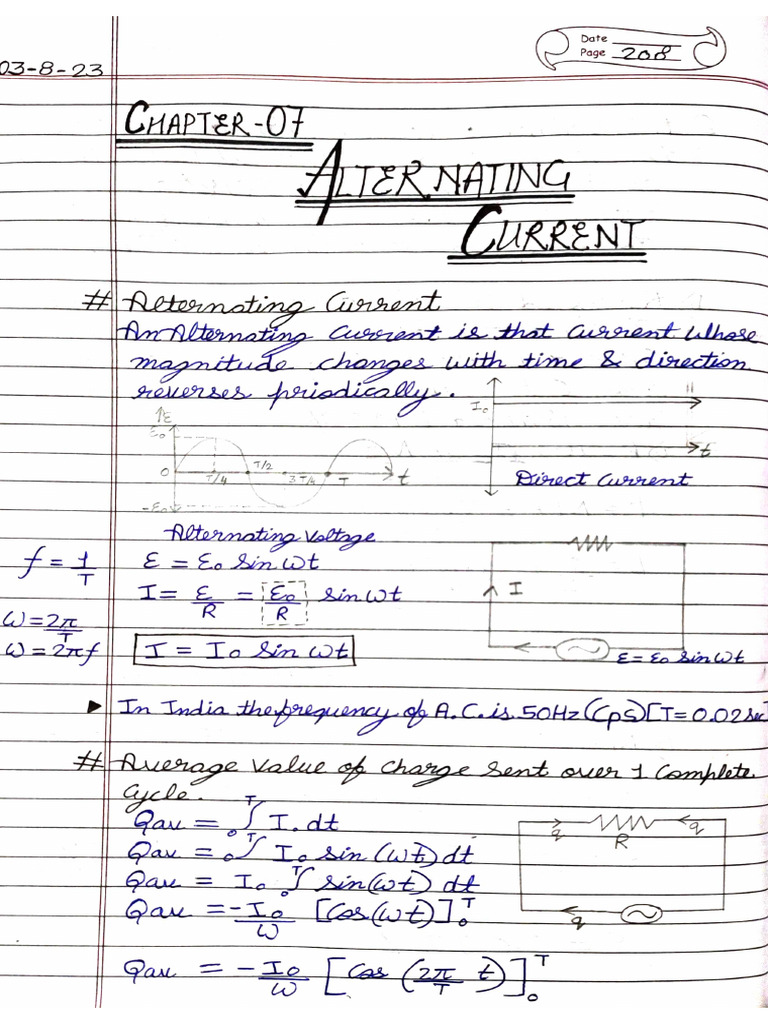 Date
Page 208
03-8-23
CHAPTER-07
ALTERNATING
CURRENT
# Alternating Current
An Alternating current is that current whose
magnitude changes with time & direction
reverses priodically.
↑E
E₀
0
T/4
T/2
3T/4
T
t
-E₀
I₀
t
Direct current
Alternating voltage
f = 1/T
ε = ε₀ sin ωt
I = ε/R = ε₀/R sin ωt
ω = 2π/T
ω = 2πf
I = I₀ sin ωt
I
ε = ε₀ sin ωt
▶ In India the frequency of A.C. is 50Hz (Cps) [T = 0.02 sec]
# Average value of charge sent over 1 complete
cycle.
Qav = ₀∫ᵀ I. dt
Qav = ₀∫ᵀ I₀ sin (ωt) dt
Qav = I₀ ₀∫ᵀ sin(ωt) dt
Qav = -I₀/ω [Cos(ωt)]₀ᵀ
q
R
q
q
Qav = -I₀/ω [Cos (2π/T t)]₀ᵀ